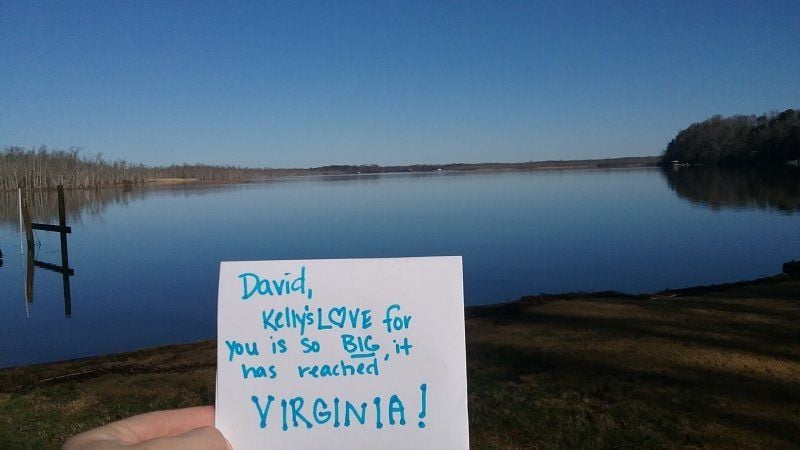 David,
Kelly's LOVE for
you is so BIG, it
has reached
VIRGINIA!